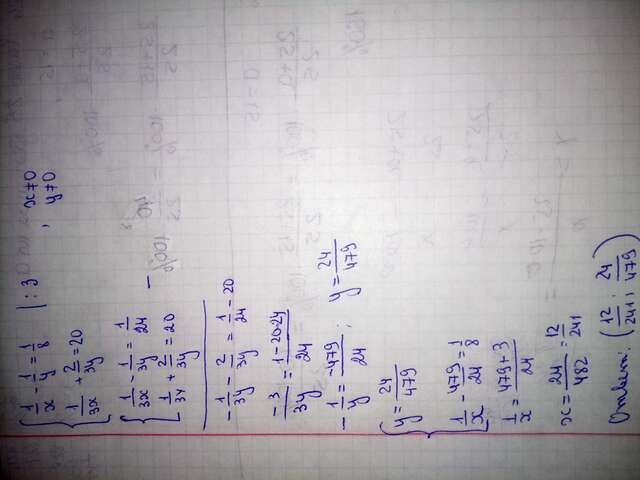 { 1/x - 1/y = 1/8 | : 3 , x≠0
{ 1/3x + 2/3y = 20 y≠0
{ 1/3x - 1/3y = 1/24 -
{ 1/3x + 2/3y = 20
- 1/3y - 2/3y = 1/24 - 20
- 3/3y = 1-20·24/24
- 1/y = -479/24 ; y = 24/479
{ y = 24/479
{ 1/x - 479/24 = 1/8
1/x = 479+3/24
x = 24/482 = 12/241
Ответ: (12/241 ; 24/479)